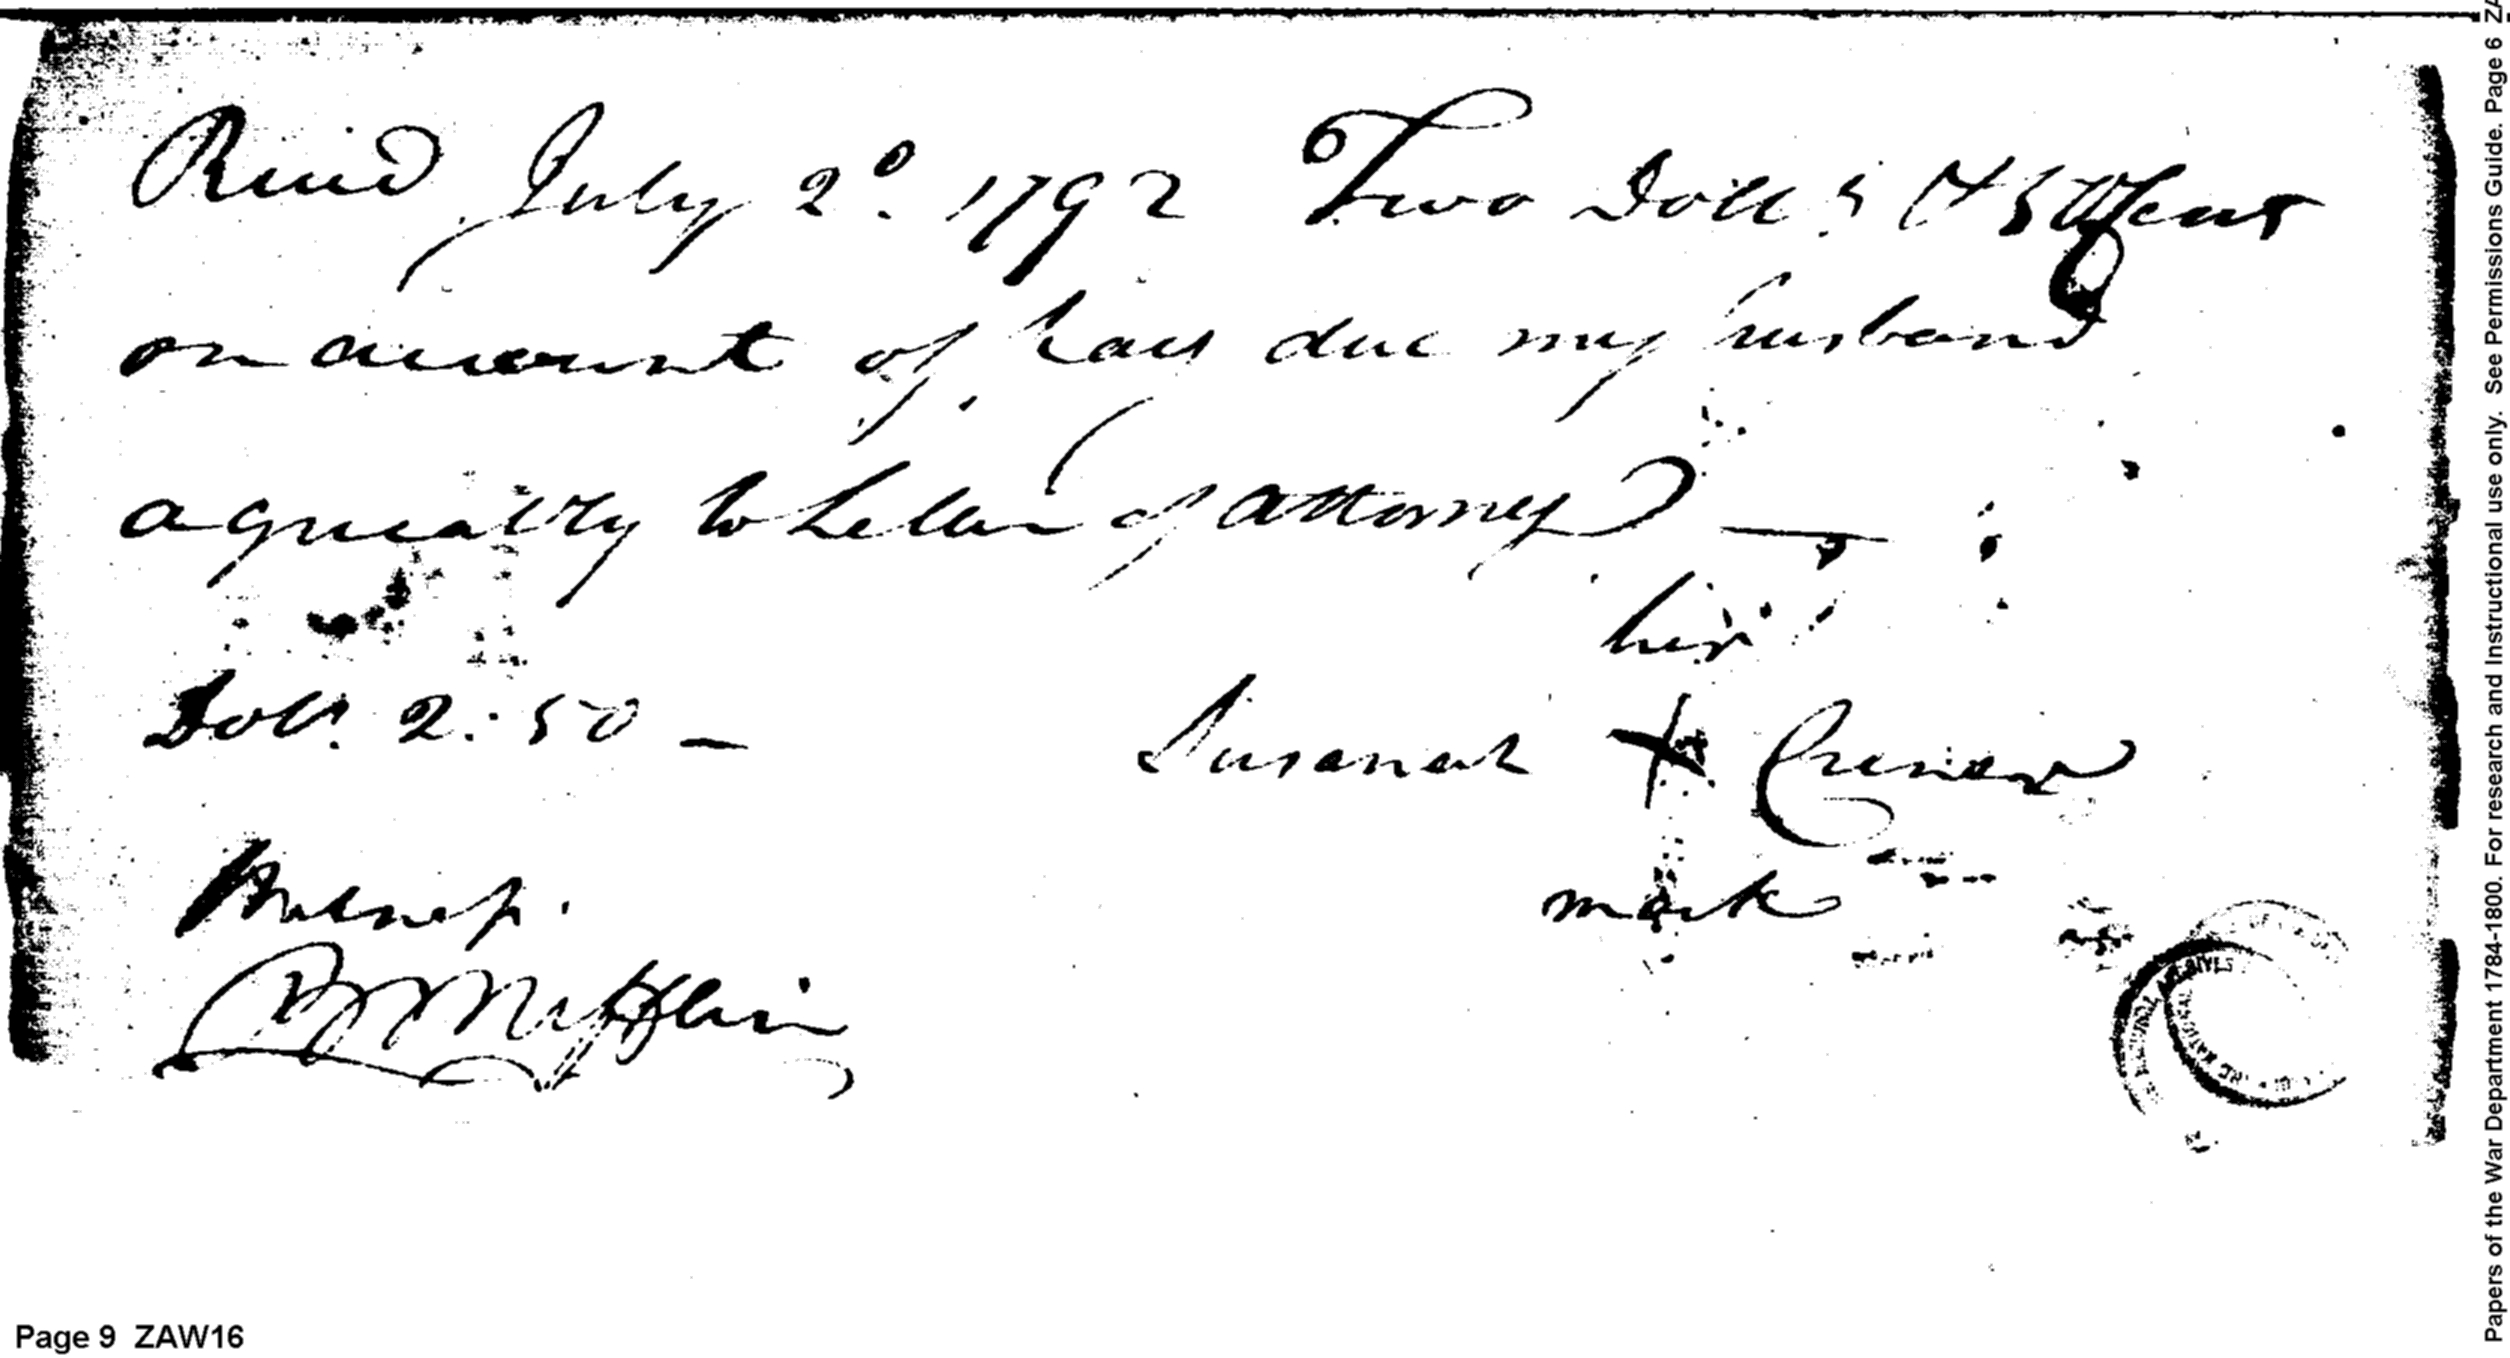 Recied July 2d. 1792 Two Dolls & 50 Cents
on account of pay due my husband
agreeably to he law of attorney —
her
Dolls. 2.50 — Susanah + 
mark
Witness.
B Mifflin
Page 9 ZAW16
Papers of the War Department 1784-1800. For research and Instructional use only. See Permissions Guide. Page 6 ZA